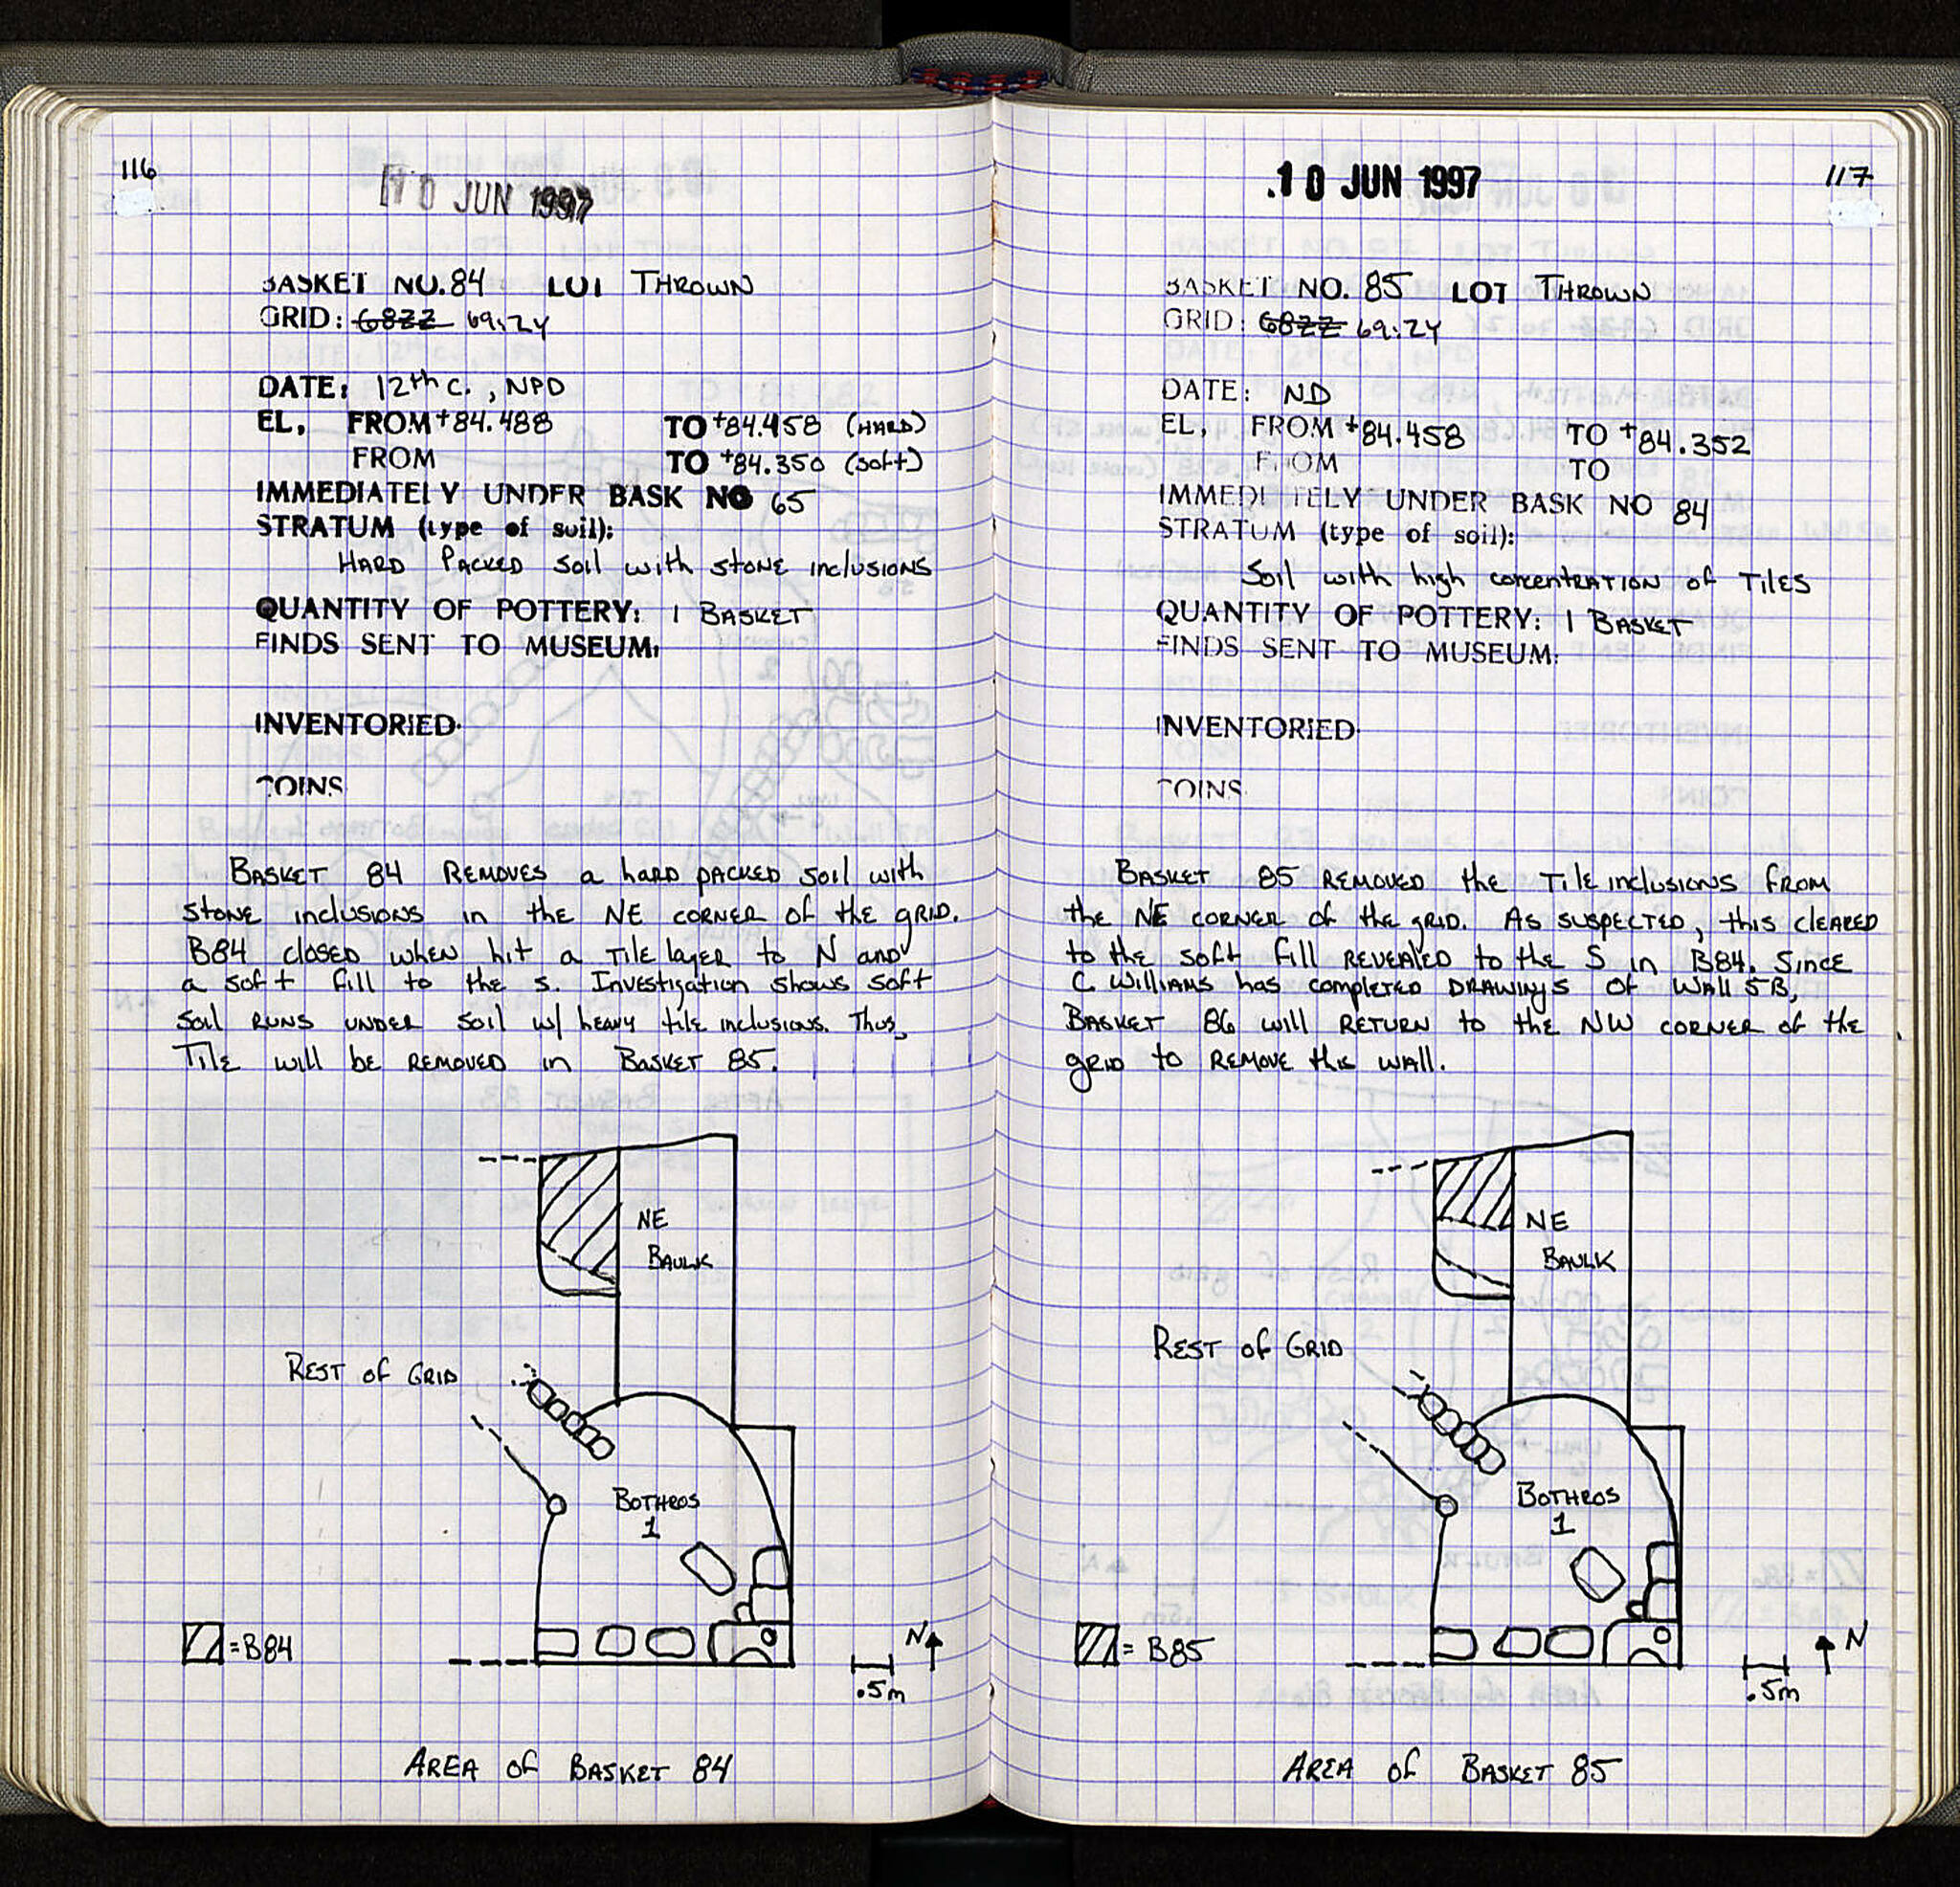 116
10 JUN 1997
BASKET NO. 84 LOT THROWN
GRID: 68ZZ 69:ZY
DATE: 12th C., NPD
EL, FROM +84.488 TO +84.458 (HARD)
FROM TO +84.350 (SOFT)
IMMEDIATELY UNDER BASK NO 65
STRATUM (type of soil):
HARD PACKED SOIL with STONE INCLUSIONS
QUANTITY OF POTTERY: 1 BASKET
FINDS SENT TO MUSEUM:
INVENTORIED.
COINS
BASKET 84 REMOVES a hard PACKED SOIL with
STONE INCLUSIONS IN the NE CORNER OF the GRID.
B84 CLOSED WHEN hit a TILE layer to N and
a soft fill to the S. Investigation shows soft
soil RUNS UNDER soil w/ heavy tile inclusions. Thus,
TILE will be REMOVED in BASKET 85.
NE
BAULK
REST of GRID
BOTHROS
1
= B84
N
.5m
AREA of BASKET 84
117
10 JUN 1997
BASKET NO. 85 LOT THROWN
GRID: 68ZZ 69:ZY
DATE: ND
EL, FROM +84.458 TO +84.352
FROM TO
IMMEDIATELY UNDER BASK NO 84
STRATUM (type of soil):
Soil with high concentration of TILES
QUANTITY OF POTTERY: 1 BASKET
FINDS SENT TO MUSEUM:
INVENTORIED.
COINS
BASKET 85 REMOVED the TILE inclusions FROM
the NE CORNER of the GRID. As SUSPECTED, this CLEARED
to the soft fill REVEALED to the S in B84. Since
C WILLIAMS has completed DRAWINGS OF WALL 5B,
BASKET 86 will RETURN to the NW CORNER of the
GRID to REMOVE this WALL.
NE
BAULK
REST of GRID
BOTHROS
1
= B85
N
.5m
AREA of BASKET 85